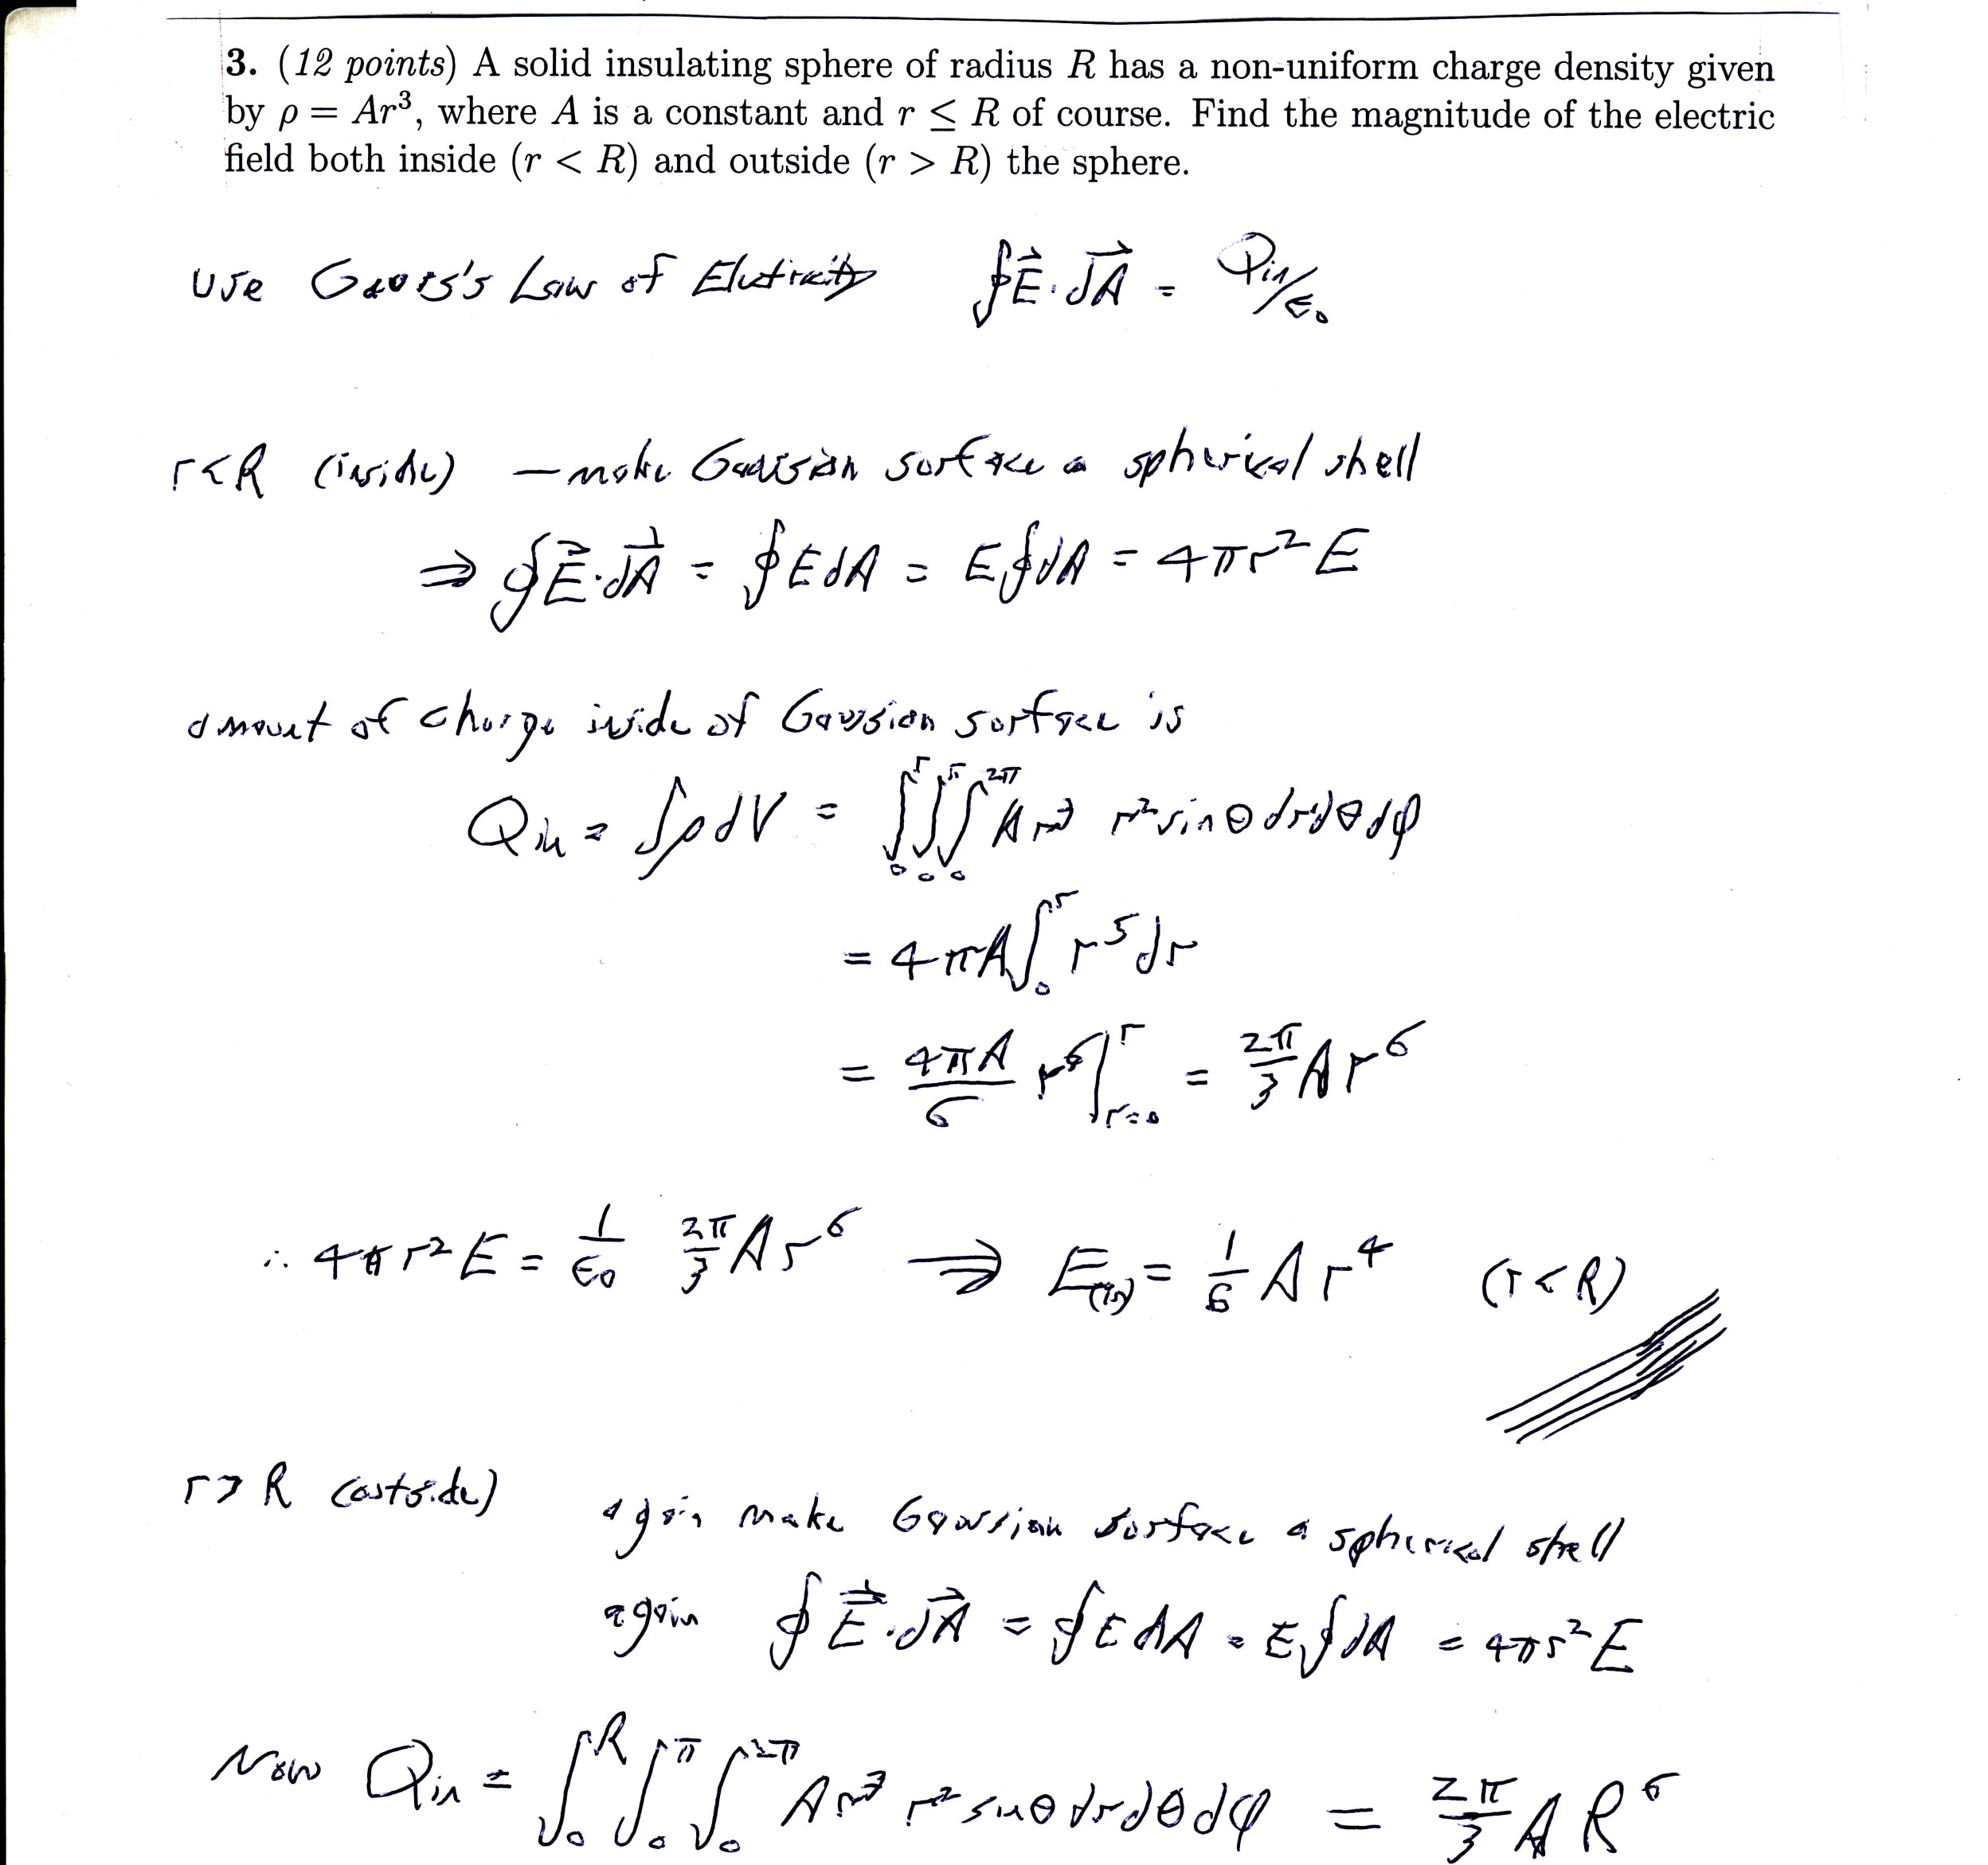 3. (12 points) A solid insulating sphere of radius R has a non-uniform charge density given
by ρ = Ar³, where A is a constant and r ≤ R of course. Find the magnitude of the electric
field both inside (r < R) and outside (r > R) the sphere.
Use Gauss's Law of Eletricity ∮E⃗·dA⃗ = Qin/ε₀
r<R (inside) — make Gaussian surface a spherical shell
⇒ ∮E⃗·dA⃗ = ∮EdA = E∮dA = 4πr²E
amount of charge inside of Gaussian surface is
Qin = ∫ρdV = ∫₀^r ∫₀^π ∫₀^2π Ar³ r²sinθdrdθdφ
= 4πA∫₀^r r⁵dr
= 4πA/6 r⁶|_{r=0}^r = 2π/3 Ar⁶
∴ 4πr²E = 1/ε₀ 2π/3 Ar⁶ ⇒ E(in) = 1/6 Ar⁴ (r<R)
r>R (outside) again make Gaussian surface a spherical shell
again ∮E⃗·dA⃗ = ∮EdA = E∮dA = 4πr²E
Now Qin = ∫₀^R ∫₀^π ∫₀^2π Ar³ r² sinθdrdθdφ = 2π/3 AR⁶